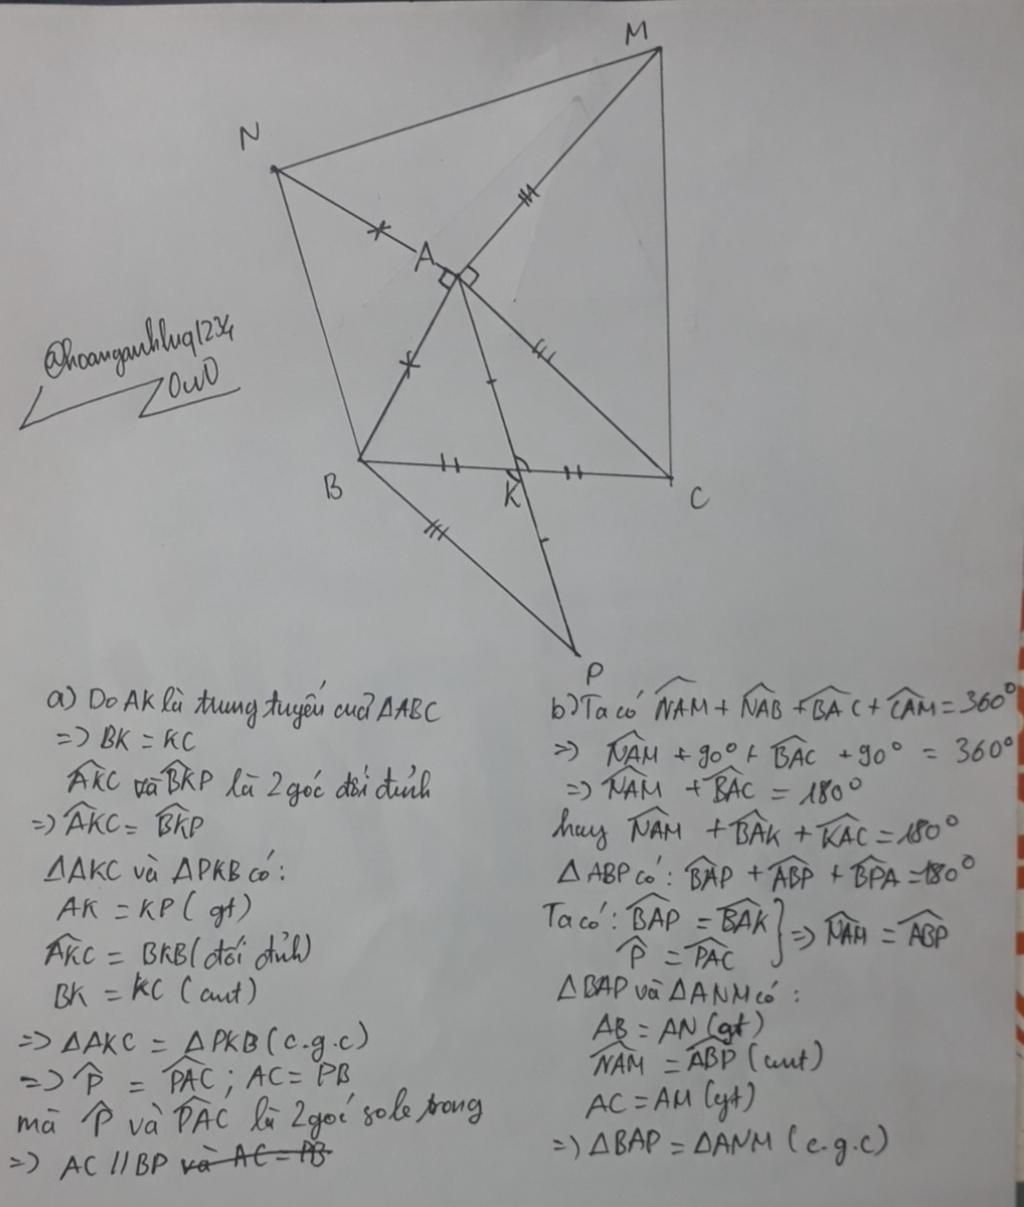 M
N
A
@hoanganhhuq1234
OwO
B
K
C
P
a) Do AK là trung tuyến của ΔABC
=> BK = KC
\widehat{AKC} và \widehat{BKP} là 2 góc đối đỉnh
=> \widehat{AKC} = \widehat{BKP}
ΔAKC và ΔPKB có:
AK = KP (gt)
\widehat{AKC} = BKB (đối đỉnh)
BK = KC (cmt)
=> ΔAKC = ΔPKB (c.g.c)
=> \widehat{P} = \widehat{PAC}; AC = PB
mà \widehat{P} và \widehat{PAC} là 2 góc sole trong
=> AC // BP và AC = PB
b) Ta có \widehat{NAM} + \widehat{NAB} + \widehat{BAC} + \widehat{CAM} = 360°
=> \widehat{NAM} + 90° + \widehat{BAC} + 90° = 360°
=> \widehat{NAM} + \widehat{BAC} = 180°
hay \widehat{NAM} + \widehat{BAK} + \widehat{KAC} = 180°
ΔABP có: \widehat{BAP} + \widehat{ABP} + \widehat{BPA} = 180°
Ta có: \widehat{BAP} = \widehat{BAK} } => \widehat{NAM} = \widehat{ABP}
\widehat{P} = \widehat{PAC}
ΔBAP và ΔANM có:
AB = AN (gt)
\widehat{NAM} = \widehat{ABP} (cmt)
AC = AM (gt)
=> ΔBAP = ΔANM (c.g.c)